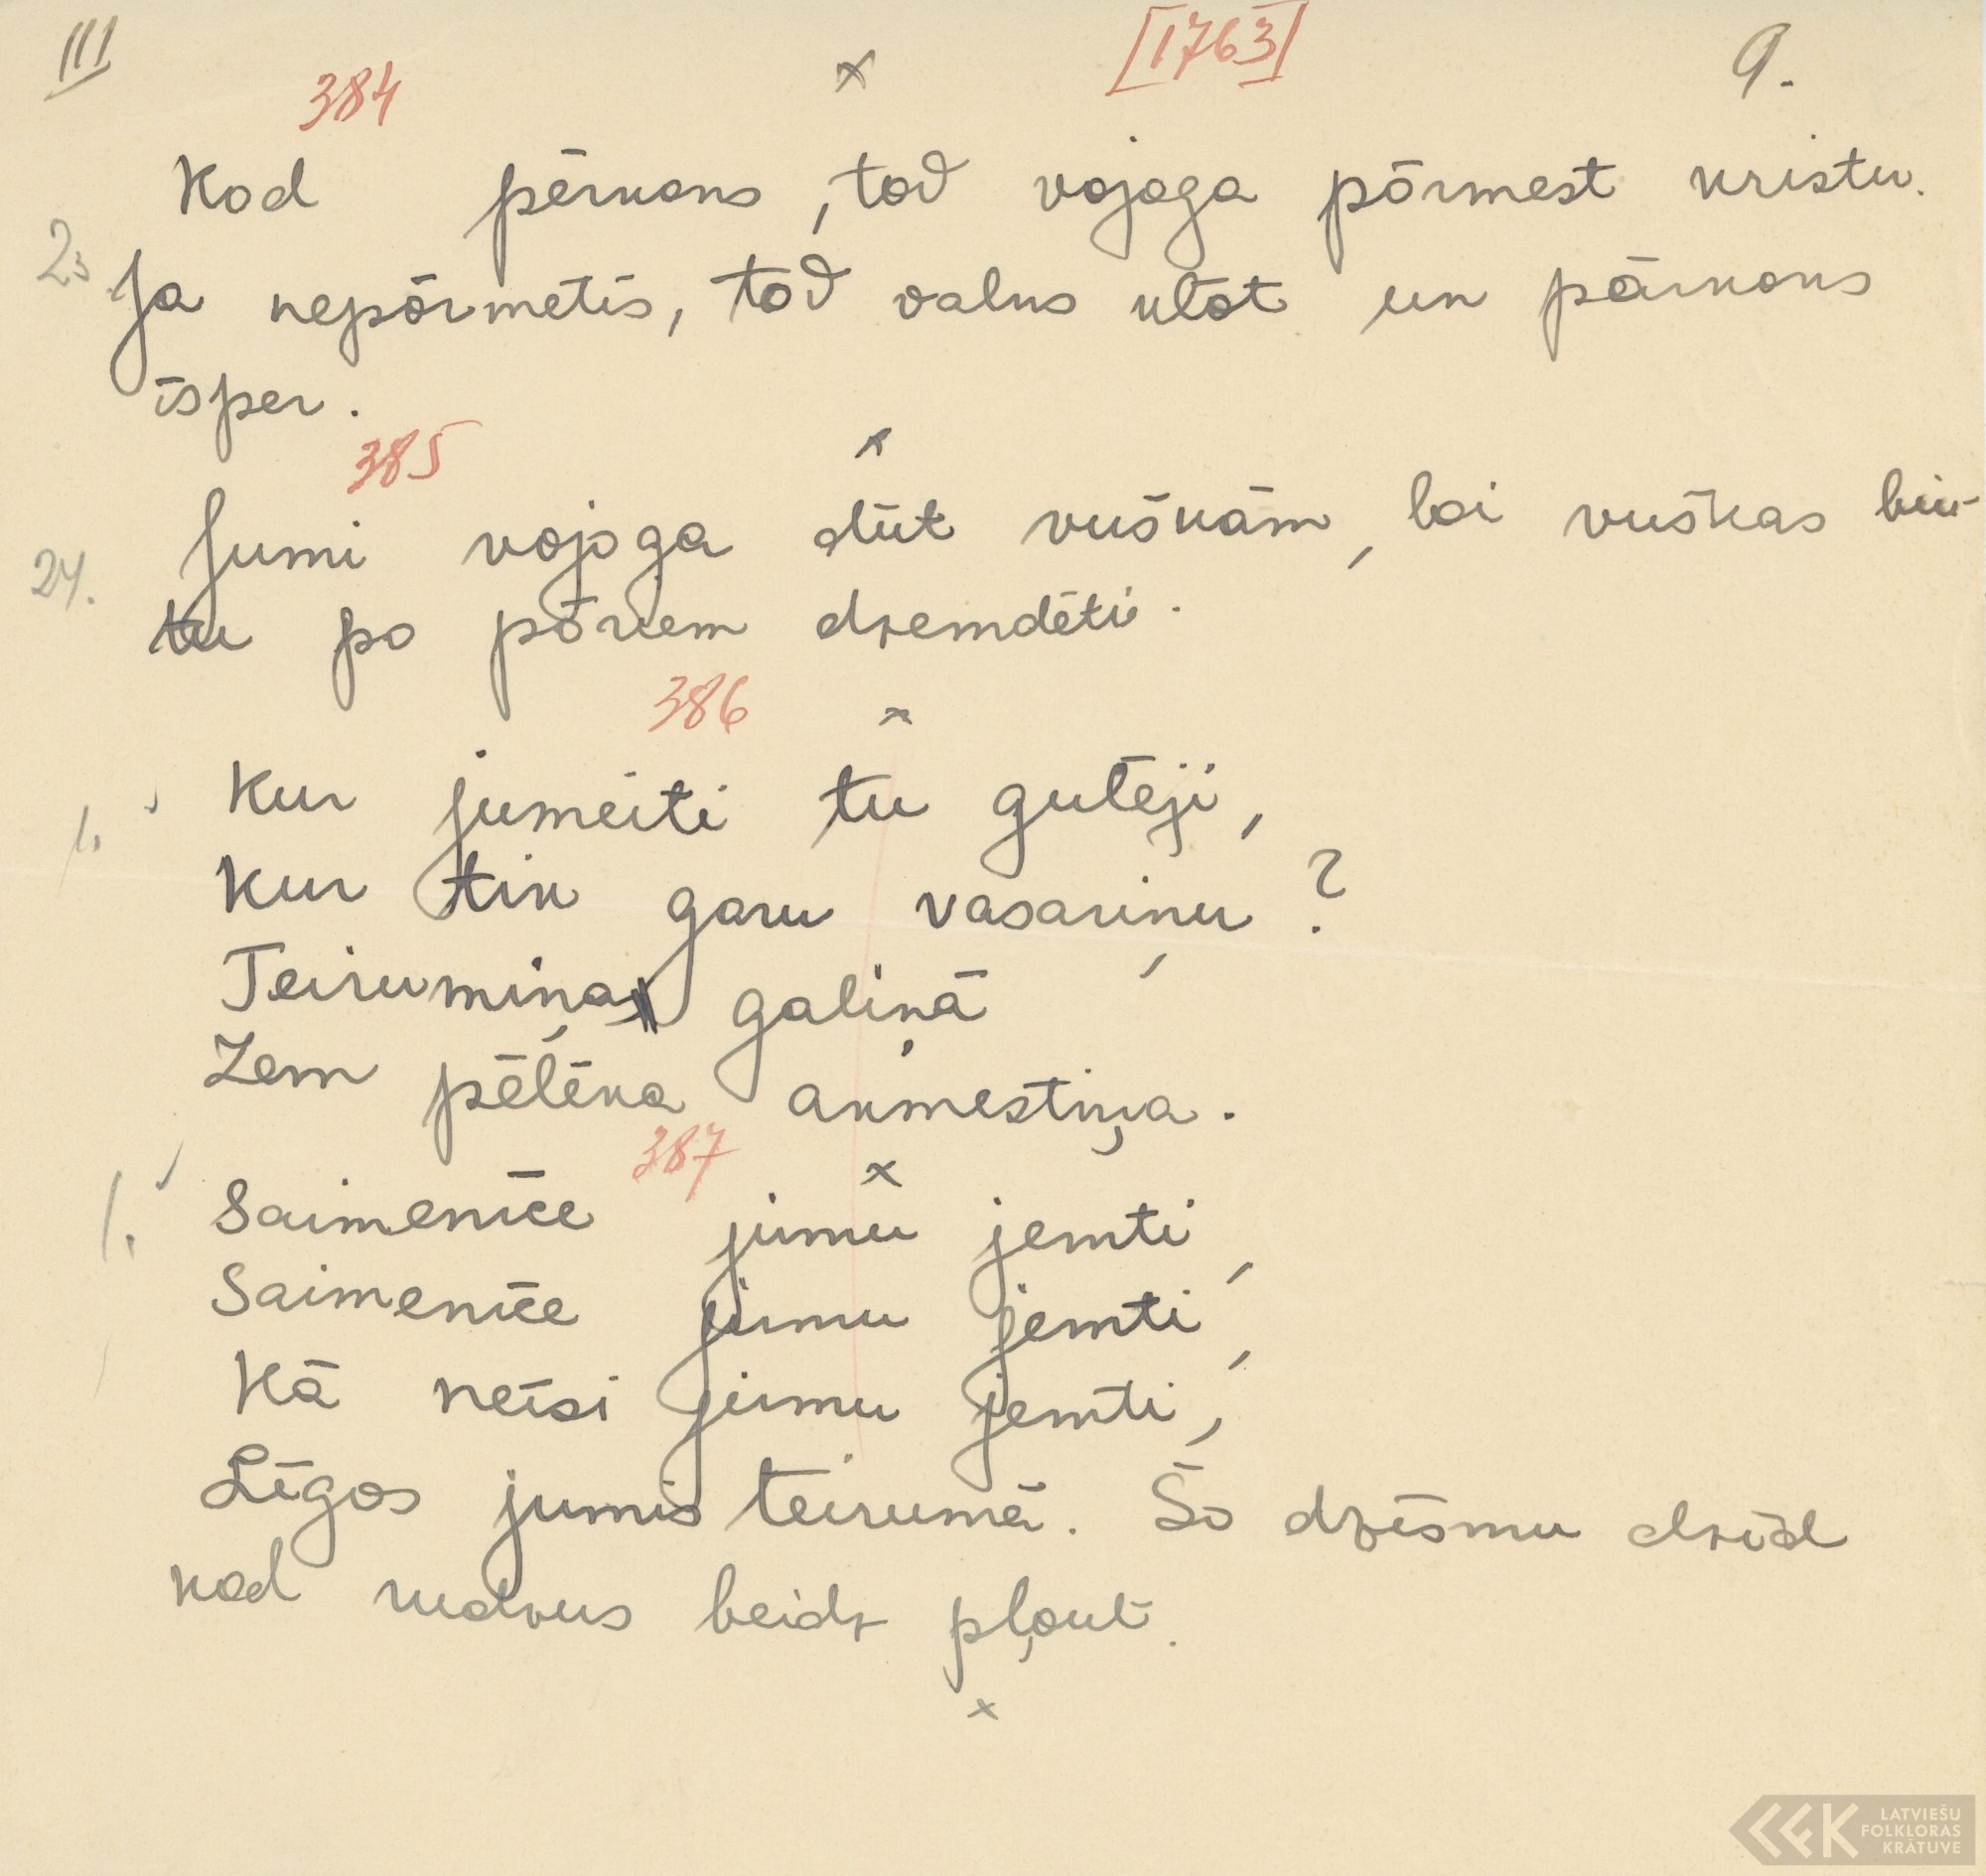 III 384 x [1763] 9.
Kod pērkons, tod vojoga pōrmest kristu.
2. Ja nepōrmetīs, tod valns klōt un pārkons
īsper.
385 x
Jumi vojoga dūt vuškām, loi vuškas bū-
24.
tu po pōriem dzemdēti.
386 x
1. Kur jumeiti tu gulēji,
Kur tik garu vasariņu?
Teirumiņa galiņā
Zem pēlēka akmestiņa.
387 x
1. Saimenīce jumu jemti,
Saimenīce jumu jemti,
Kā neisi jumu jemti,
Līgos jumis teirumā. Šō dzīsmu dzīd
kod rudzus beidz pļout.
x
LATVIEŠU
FOLKLORAS
KRĀTUVE